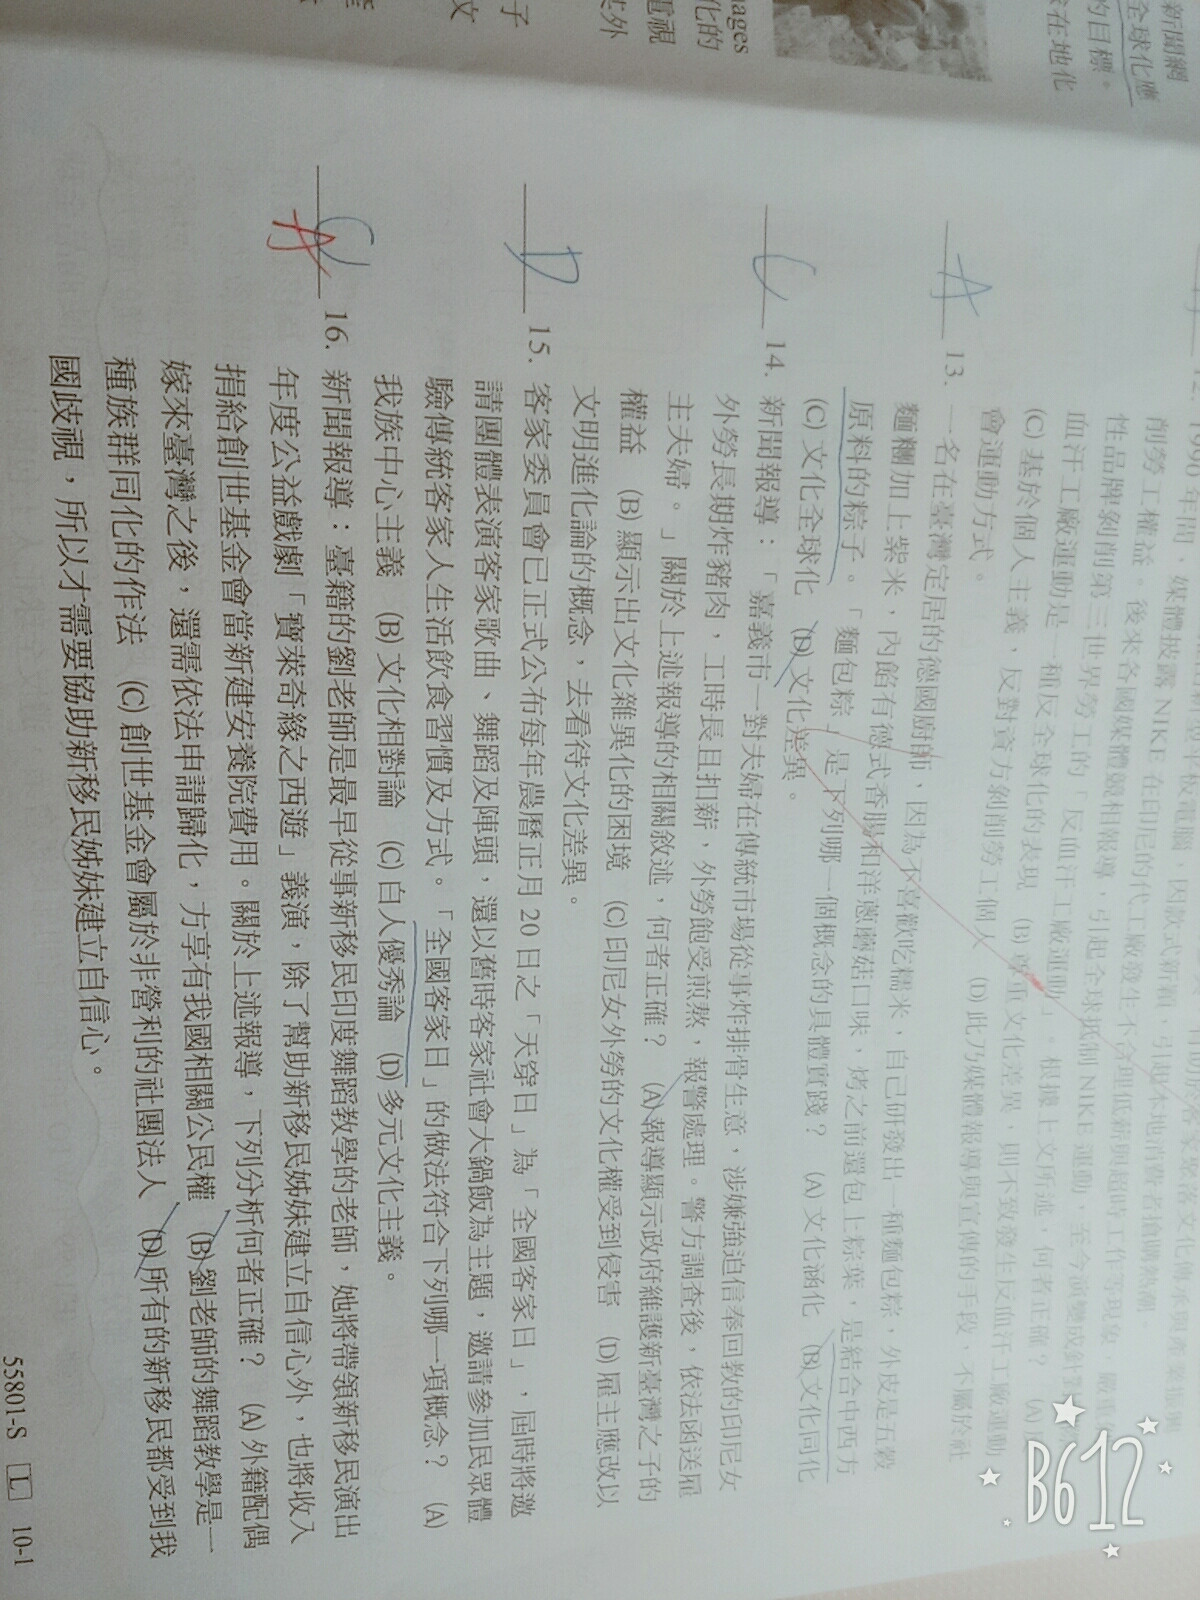 新聞網
全球化應
的目標。
在地化
ages
化的
電視
其外
子
文
削勞工權益。後來各國媒體競相報導，引起全球抵制 NIKE 運動
血汗工廠運動是一種反全球化的表現 (B)尊重文化差異，則不致發生反血汗工廠運動
(C)基於個人主義，反對資方剝削勞工個人 (D)此乃媒體報導與宣傳的手段，不屬於社
會運動方式。
A 13. 一名在臺灣定居的德國廚師，因為不喜歡吃糯米，自己研發出一種麵包粽，外皮是五穀
麵糰加上紫米，內餡有德式香腸和洋蔥蘑菇口味，烤之前還包上粽葉，是結合中西方
原料的粽子。「麵包粽」是下列哪一個概念的具體實踐？ (A)文化涵化 (B)文化同化
(C)文化全球化 (D)文化差異。
C 14. 新聞報導：「嘉義市一對夫婦在傳統市場從事炸排骨生意，涉嫌強迫信奉回教的印尼女
外勞長期炸豬肉，工時長且扣薪，外勞飽受煎熬，報警處理。警方調查後，依法函送雇
主夫婦。」關於上述報導的相關敘述，何者正確？ (A)報導顯示政府維護新臺灣之子的
權益 (B)顯示出文化雜異化的困境 (C)印尼女外勞的文化權受到侵害 (D)雇主應改以
文明進化論的概念，去看待文化差異。
D 15. 客家委員會已正式公布每年農曆正月 20 日之「天穿日」為「全國客家日」，屆時將邀
請團體表演客家歌曲、舞蹈及陣頭，還以舊時客家社會大鍋飯為主題，邀請參加民眾體
驗傳統客家人生活飲食習慣及方式。「全國客家日」的做法符合下列哪一項概念？ (A)
我族中心主義 (B)文化相對論 (C)白人優秀論 (D)多元文化主義。
A 16. 新聞報導：臺籍的劉老師是最早從事新移民印度舞蹈教學的老師，她將帶領新移民演出
年度公益戲劇「寶萊奇緣之西遊」義演，除了幫助新移民姊妹建立自信心外，也將收入
捐給創世基金會當新建安養院費用。關於上述報導，下列分析何者正確？ (A)外籍配偶
嫁來臺灣之後，還需依法申請歸化，方享有我國相關公民權 (B)劉老師的舞蹈教學是一
種族群同化的作法 (C)創世基金會屬於非營利的社團法人 (D)所有的新移民都受到我
國歧視，所以才需要協助新移民姊妹建立自信心。
55801-S L 10-1
B612